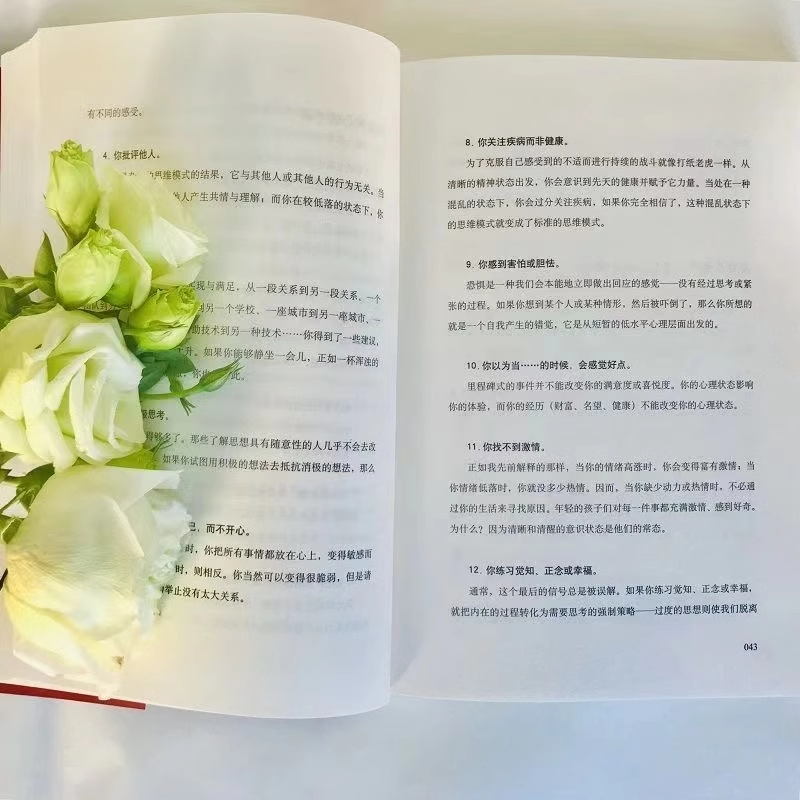 有不同的感受。
4. 你批评他人。
思维模式的结果，它与其他人或其他人的行为无关。当
他人产生共情与理解；而你在较低落的状态下，你
现与满足，从一段关系到另一段关系、一个
到另一个学校、一座城市到另一座城市、一
助技术到另一种技术……你得到了一些建议，
升。如果你能够静坐一会儿，正如一杯浑浊的
此。
思考。
得够多了。那些了解思想具有随意性的人几乎不会去改
如果你试图用积极的想法去抵抗消极的想法，那么
己，而不开心。
时，你把所有事情都放在心上，变得敏感而
时，则相反。你当然可以变得很脆弱，但是请
举止没有太大关系。
8. 你关注疾病而非健康。
为了克服自己感受到的不适而进行持续的战斗就像打纸老虎一样。从
清晰的精神状态出发，你会意识到先天的健康并赋予它力量。当处在一种
混乱的状态下，你会过分关注疾病，如果你完全相信了，这种混乱状态下
的思维模式就变成了标准的思维模式。
9. 你感到害怕或胆怯。
恐惧是一种我们会本能地立即做出回应的感觉——没有经过思考或紧
张的过程。如果你想到某个人或某种情形，然后被吓倒了，那么你所想的
就是一个自我产生的错觉，它是从短暂的低水平心理层面出发的。
10. 你以为当……的时候，会感觉好点。
里程碑式的事件并不能改变你的满意度或喜悦度。你的心理状态影响
你的体验，而你的经历（财富、名望、健康）不能改变你的心理状态。
11. 你找不到激情。
正如我先前解释的那样，当你的情绪高涨时，你会变得富有激情；当
你情绪低落时，你就没多少热情。因而，当你缺少动力或热情时，不必通
过你的生活来寻找原因。年轻的孩子们对每一件事都充满激情、感到好奇。
为什么？因为清晰和清醒的意识状态是他们的常态。
12. 你练习觉知、正念或幸福。
通常，这个最后的信号总是被误解。如果你练习觉知、正念或幸福，
就把内在的过程转化为需要思考的强制策略——过度的思想则使我们脱离
043